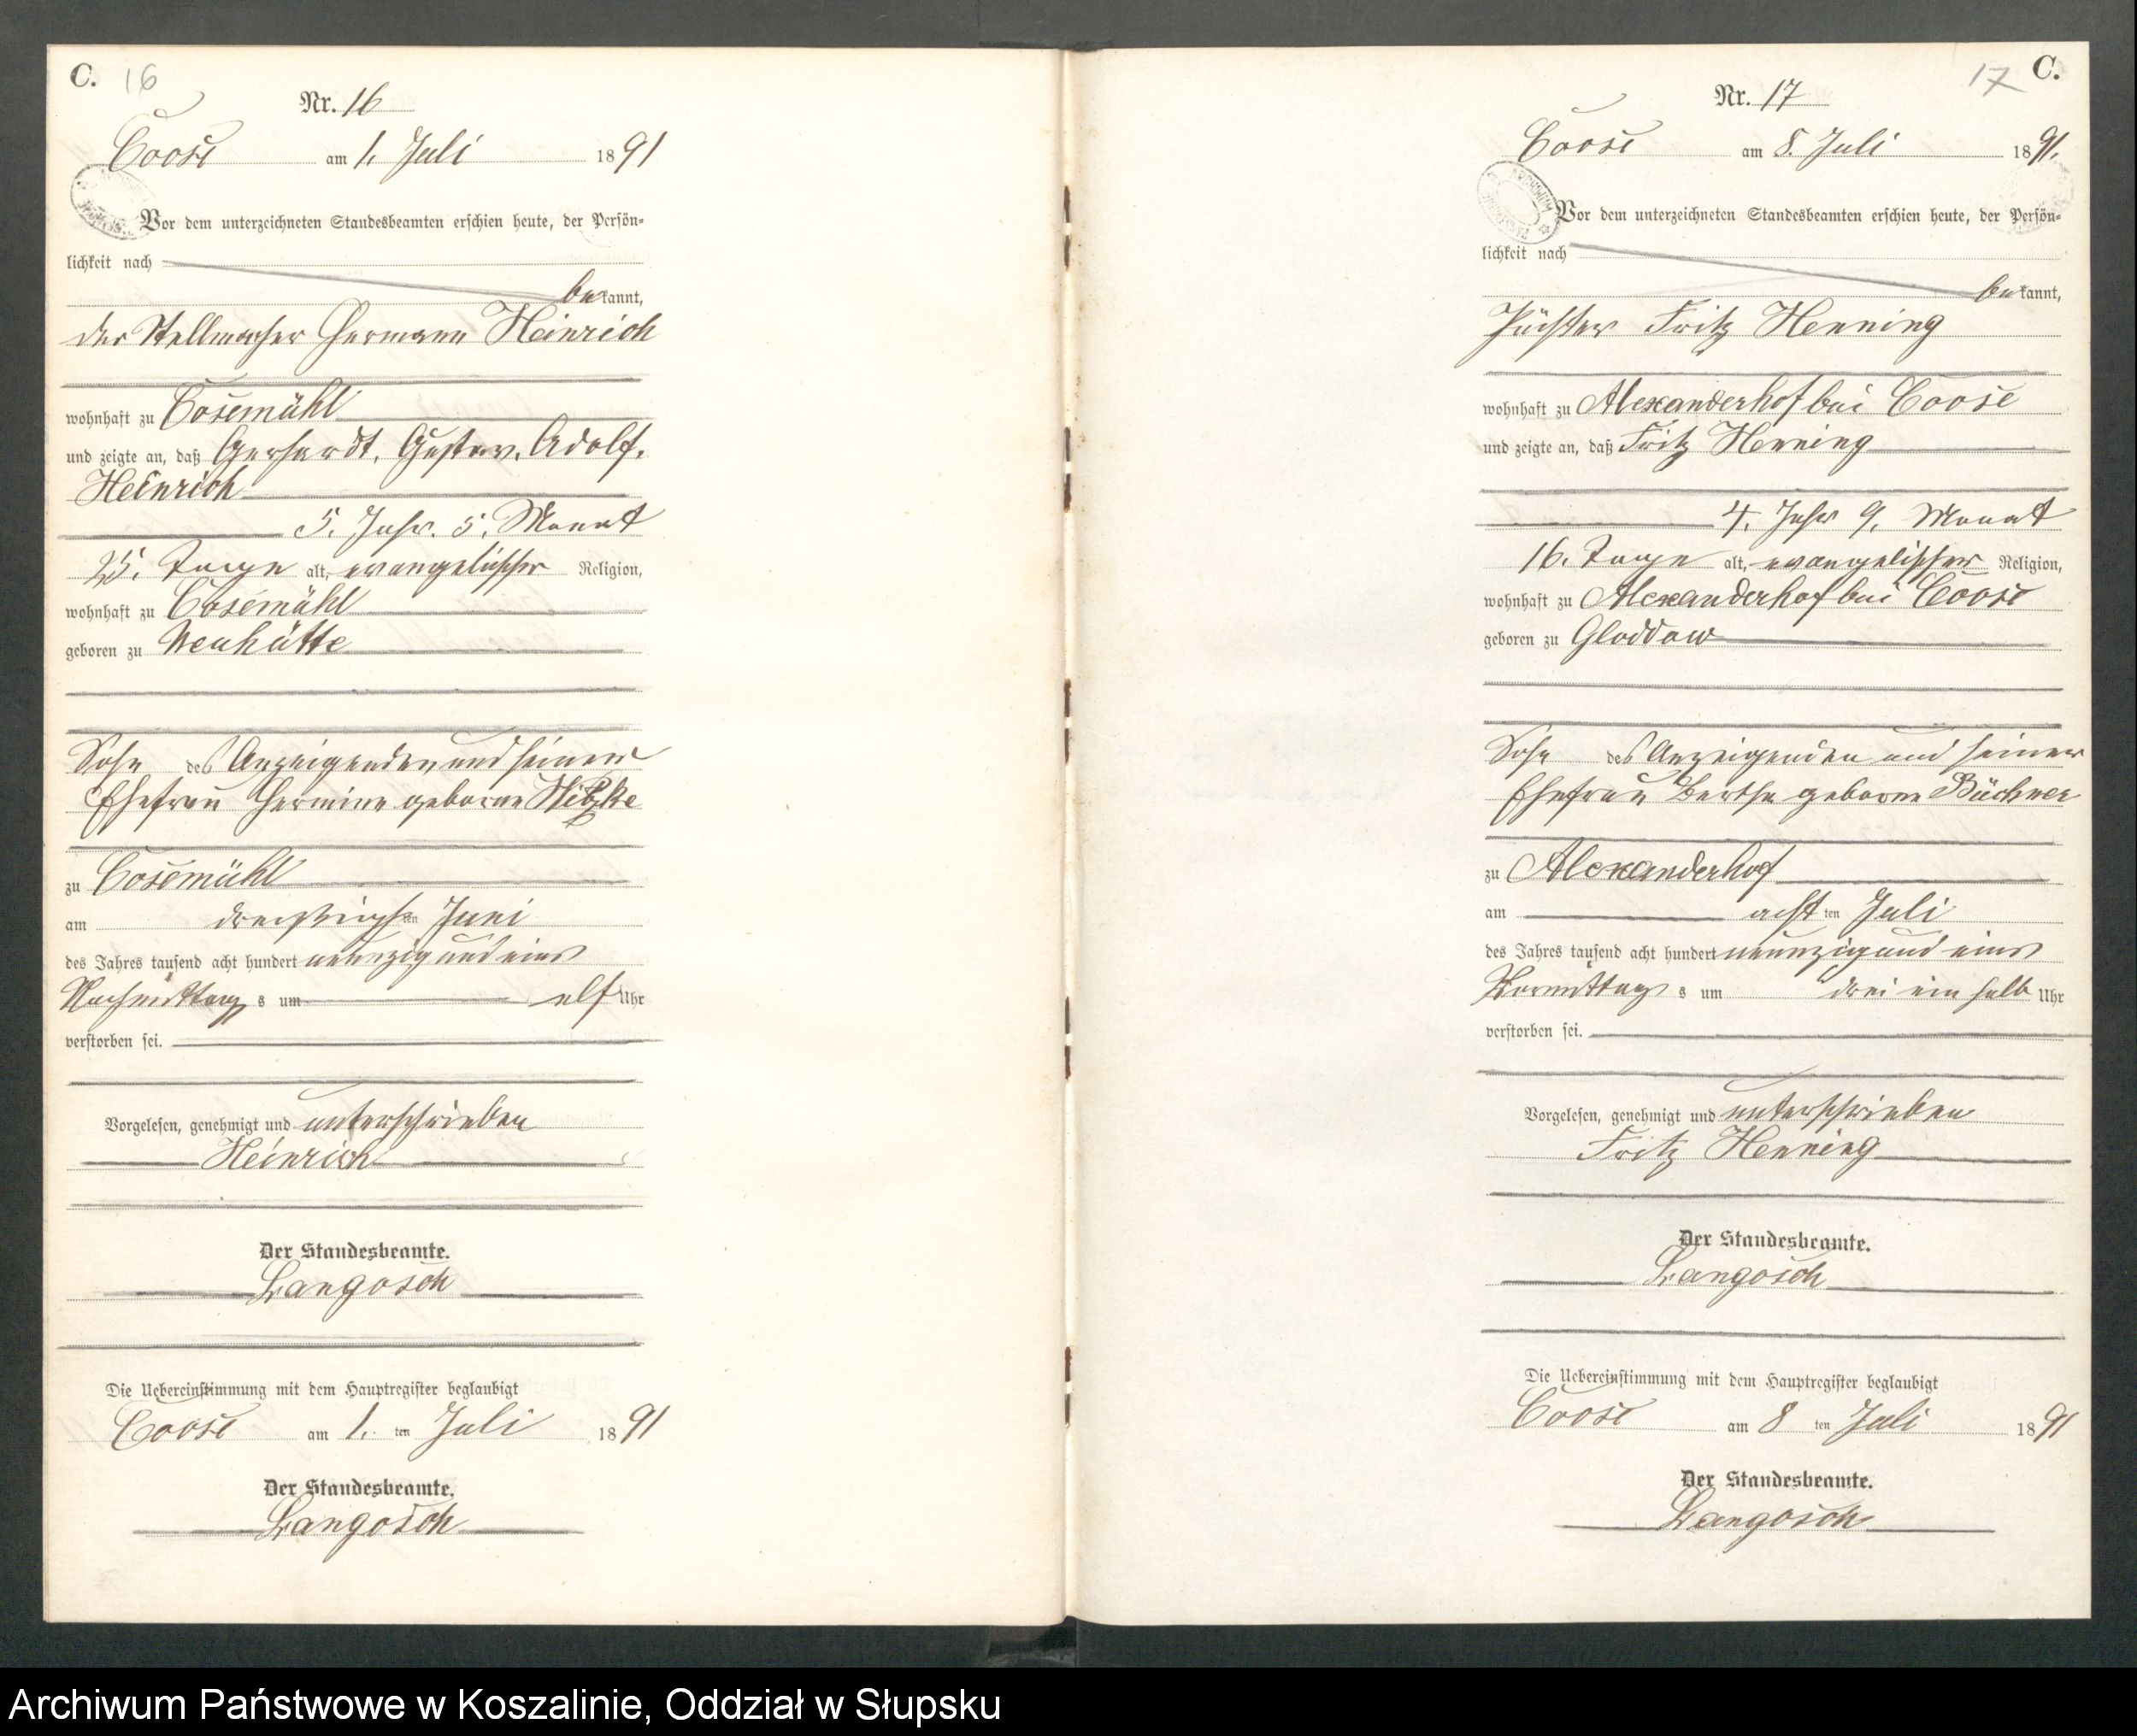 C. 16
Nr. 16
Coose am 1. Juli 1891
Vor dem unterzeichneten Standesbeamten erschien heute, der Persön-
lichkeit nach
bekannt,
der Stellmacher Hermann Heinrich
wohnhaft zu Cosemühl
und zeigte an, daß Gerhardt, Gustav, Adolf,
Heinrich
5. Jahr. 5. Monat
25. Tage alt, evangelischer Religion,
wohnhaft zu Cosemühl
geboren zu Neuhütte
Sohn des Anzeigenden und seiner
Ehefrau Hermine geborne
zu Cosemühl
am dreißigsten Juni
des Jahres tausend acht hundert neunzig und eins
Nachmittags um elf Uhr
verstorben sei.
Vorgelesen, genehmigt und unterschrieben
Heinrich
Der Standesbeamte.
Langosch
Die Uebereinstimmung mit dem Hauptregister beglaubigt
Coose am 1. ten Juli 1891
Der Standesbeamte.
Langosch
17 C.
Nr. 17
Coose am 8. Juli 1891.
ARCHIWUM
Vor dem unterzeichneten Standesbeamten erschien heute, der Persön-
lichkeit nach
bekannt,
Pächter Fritz Henning
wohnhaft zu Alexanderhof bei Coose
und zeigte an, daß Fritz Henning
4. Jahr 9. Monat
16. Tage alt, evangelischer Religion,
wohnhaft zu Alexanderhof bei Coose
geboren zu Gloddow
Sohn des Anzeigenden und seiner
Ehefrau Bertha geborne Büchner
zu Alexanderhof
am achtten Juli
des Jahres tausend acht hundert neunzig und eins
Vormittags um drei ein halb Uhr
verstorben sei.
Vorgelesen, genehmigt und unterschrieben
Fritz Henning
Der Standesbeamte.
Langosch
Die Uebereinstimmung mit dem Hauptregister beglaubigt
Coose am 8 ten Juli 1891
Der Standesbeamte.
Langosch
Archiwum Państwowe w Koszalinie, Oddział w Słupsku